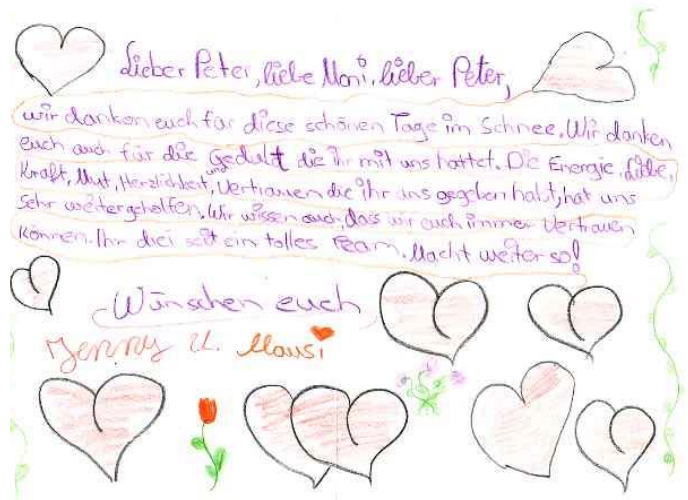 Lieber Peter, liebe Moni, lieber Peter,
wir danken euch für diese schönen Tage im Schnee. Wir danken
euch auch für die Gedult die ihr mit uns hattet. Die Energie, Liebe,
Kraft, Mut, Herzlichkeit, und Vertrauen die ihr uns gegeben habt, hat uns
sehr weitergeholfen. Wir wissen auch, dass wir euch immer Vertrauen
können. Ihr drei seit ein tolles Team. Macht weiter so!
Wünschen euch
Jenny u. Mausi